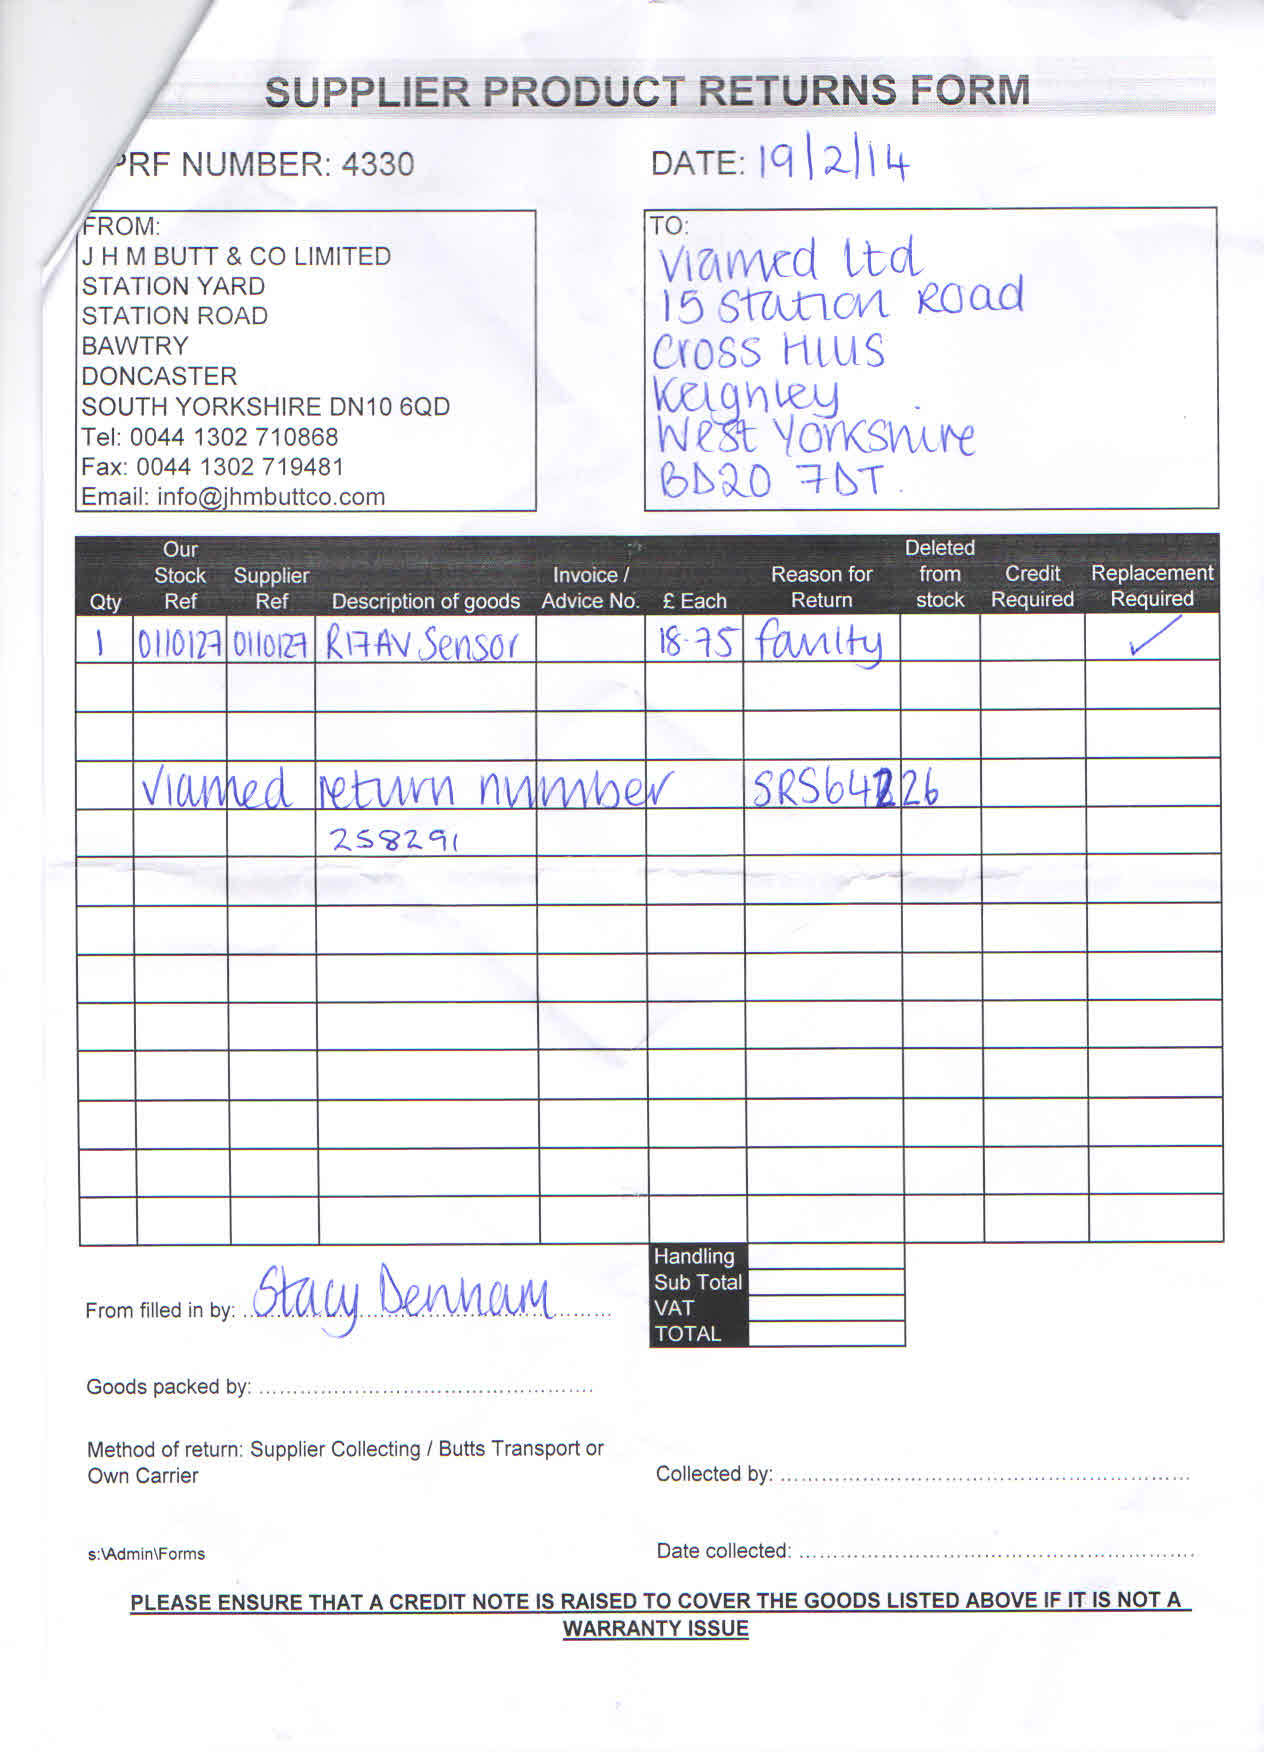 SUPPLIER PRODUCT RETURNS FORM
PRF NUMBER: 4330
DATE: 19/2/14
FROM:
J H M BUTT & CO LIMITED
STATION YARD
STATION ROAD
BAWTRY
DONCASTER
SOUTH YORKSHIRE DN10 6QD
Tel: 0044 1302 710868
Fax: 0044 1302 719481
Email: info@jhmbuttco.com
TO:
Viamed Ltd
15 Station Road
Cross Hills
Keighley
West Yorkshire
BD20 7DT.
Qty Our Stock Ref Supplier Ref Description of goods Invoice / Advice No. £ Each Reason for Return Deleted from stock Credit Required Replacement Required
1 0110127 0110127 R17AV Sensor 18-75 faulty ✓
Viamed return number SRS64226
258291
Handling
Sub Total
VAT
TOTAL
From filled in by: Stacy Denham
Goods packed by:
Method of return: Supplier Collecting / Butts Transport or
Own Carrier
Collected by:
s:\Admin\Forms
Date collected:
PLEASE ENSURE THAT A CREDIT NOTE IS RAISED TO COVER THE GOODS LISTED ABOVE IF IT IS NOT A
WARRANTY ISSUE